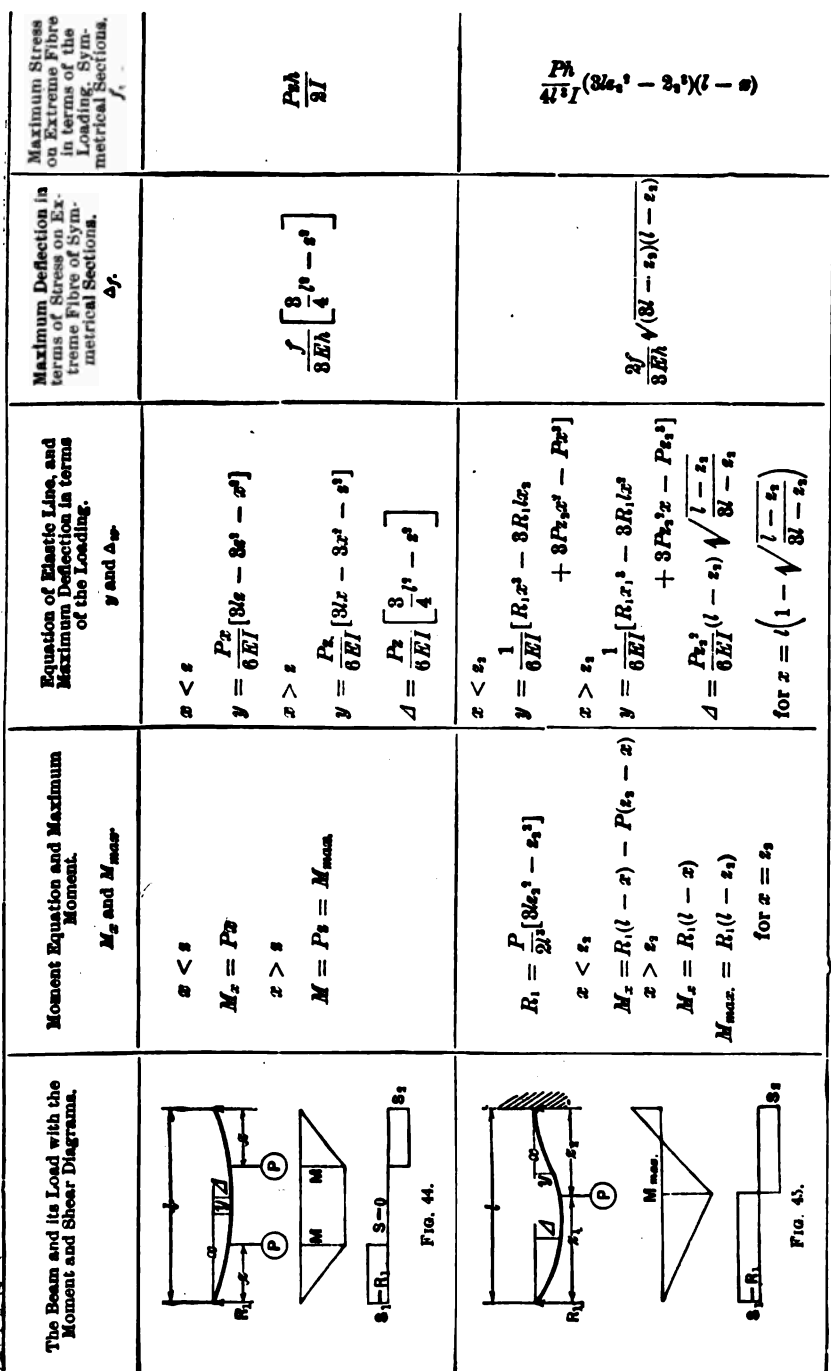 The Beam and its Load with the
Moment and Shear Diagrams.
Moment Equation and Maximum
Moment.
Mₓ and M_max.
Equation of Elastic Line, and
Maximum Deflection in terms
of the Loading.
y and Δ_w.
Maximum Deflection in
terms of Stress on Ex-
treme Fibre of Sym-
metrical Sections.
Δf.
Maximum Stress
on Extreme Fibre
in terms of the
Loading. Sym-
metrical Sections.
f.
l
x
y Δ
R₁
z
z
P
P
M
M
S₁=R₁
S=0
S₂
FIG. 44.
x < z
Mₓ = Px
x > z
M = Pz = M_max.
x < z
y = Px/6EI [3lz − 3z² − x²]
x > z
y = Pz/6EI [3lx − 3x² − z²]
Δ = Pz/6EI [3/4 l² − z²]
f/3Eh [3/4 l² − z²]
Pzh/2I
l
Δ
y
x
R₁
z₁
z₂
P
M max.
S₁=R₁
S₂
FIG. 45.
R₁ = P/2l³ [3lz₂² − z₂³]
x < z₂
Mₓ = R₁(l − x) − P(z₂ − x)
x > z₂
Mₓ = R₁(l − x)
M_max. = R₁(l − z₂)
for x = z₂
x < z₂
y = 1/6EI [R₁x³ − 3R₁lx₂
+ 3Pz₂x² − Px³]
x > z₂
y = 1/6EI [R₁x₁³ − 3R₁lx²
+ 3Pz₂²x − Pz₂³]
Δ = Pz₂²/6EI (l − z₂) √(l − z₂ / 3l − z₂)
for x = l(1 − √(l − z₂ / 3l − z₂))
2f/3Eh √(3l − z₂)(l − z₂)
Ph/4l³I (3lz₂² − 2₂³)(l − x)